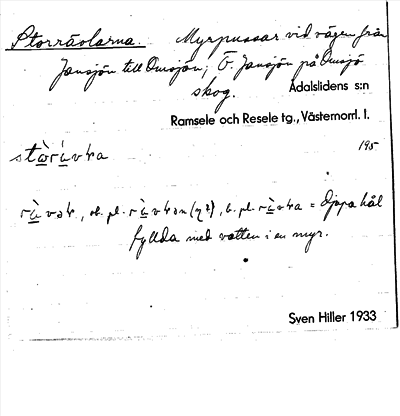 Storrävlarna. Myrpussar vid vägen från
Jansjön till Omsjön; Ö. Jansjön på Omsjö
skog. Ådalslidens s:n
Ramsele och Resele tg., Västernorrl. l.
195
, ob. pl. , b. pl. = djupa hål
fyllda med vatten i en myr.
Sven Hiller 1933